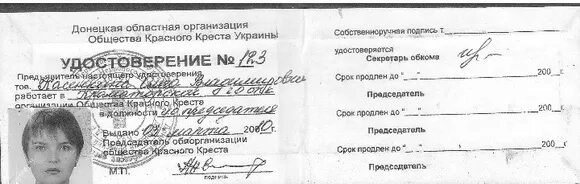 Донецкая областная организация
Общества Красного Креста Украины
УДОСТОВЕРЕНИЕ № 123
Предъявитель настоящего удостоверения
тов. Владимирович
работает в Краматорской
организации Общества Красного Креста
в должности председателя
Выдано 03 марта 2000г.
Председатель оборганизации
общества Красного Креста
М.П.
подпись
Собственноручная подпись т.
удостоверяется
Секретарь обкома
Срок продлен до "__" 200__г.
Председатель
Срок продлен до "__" 200__г.
Председатель
Срок продлен до "__" 200__г.
Председатель